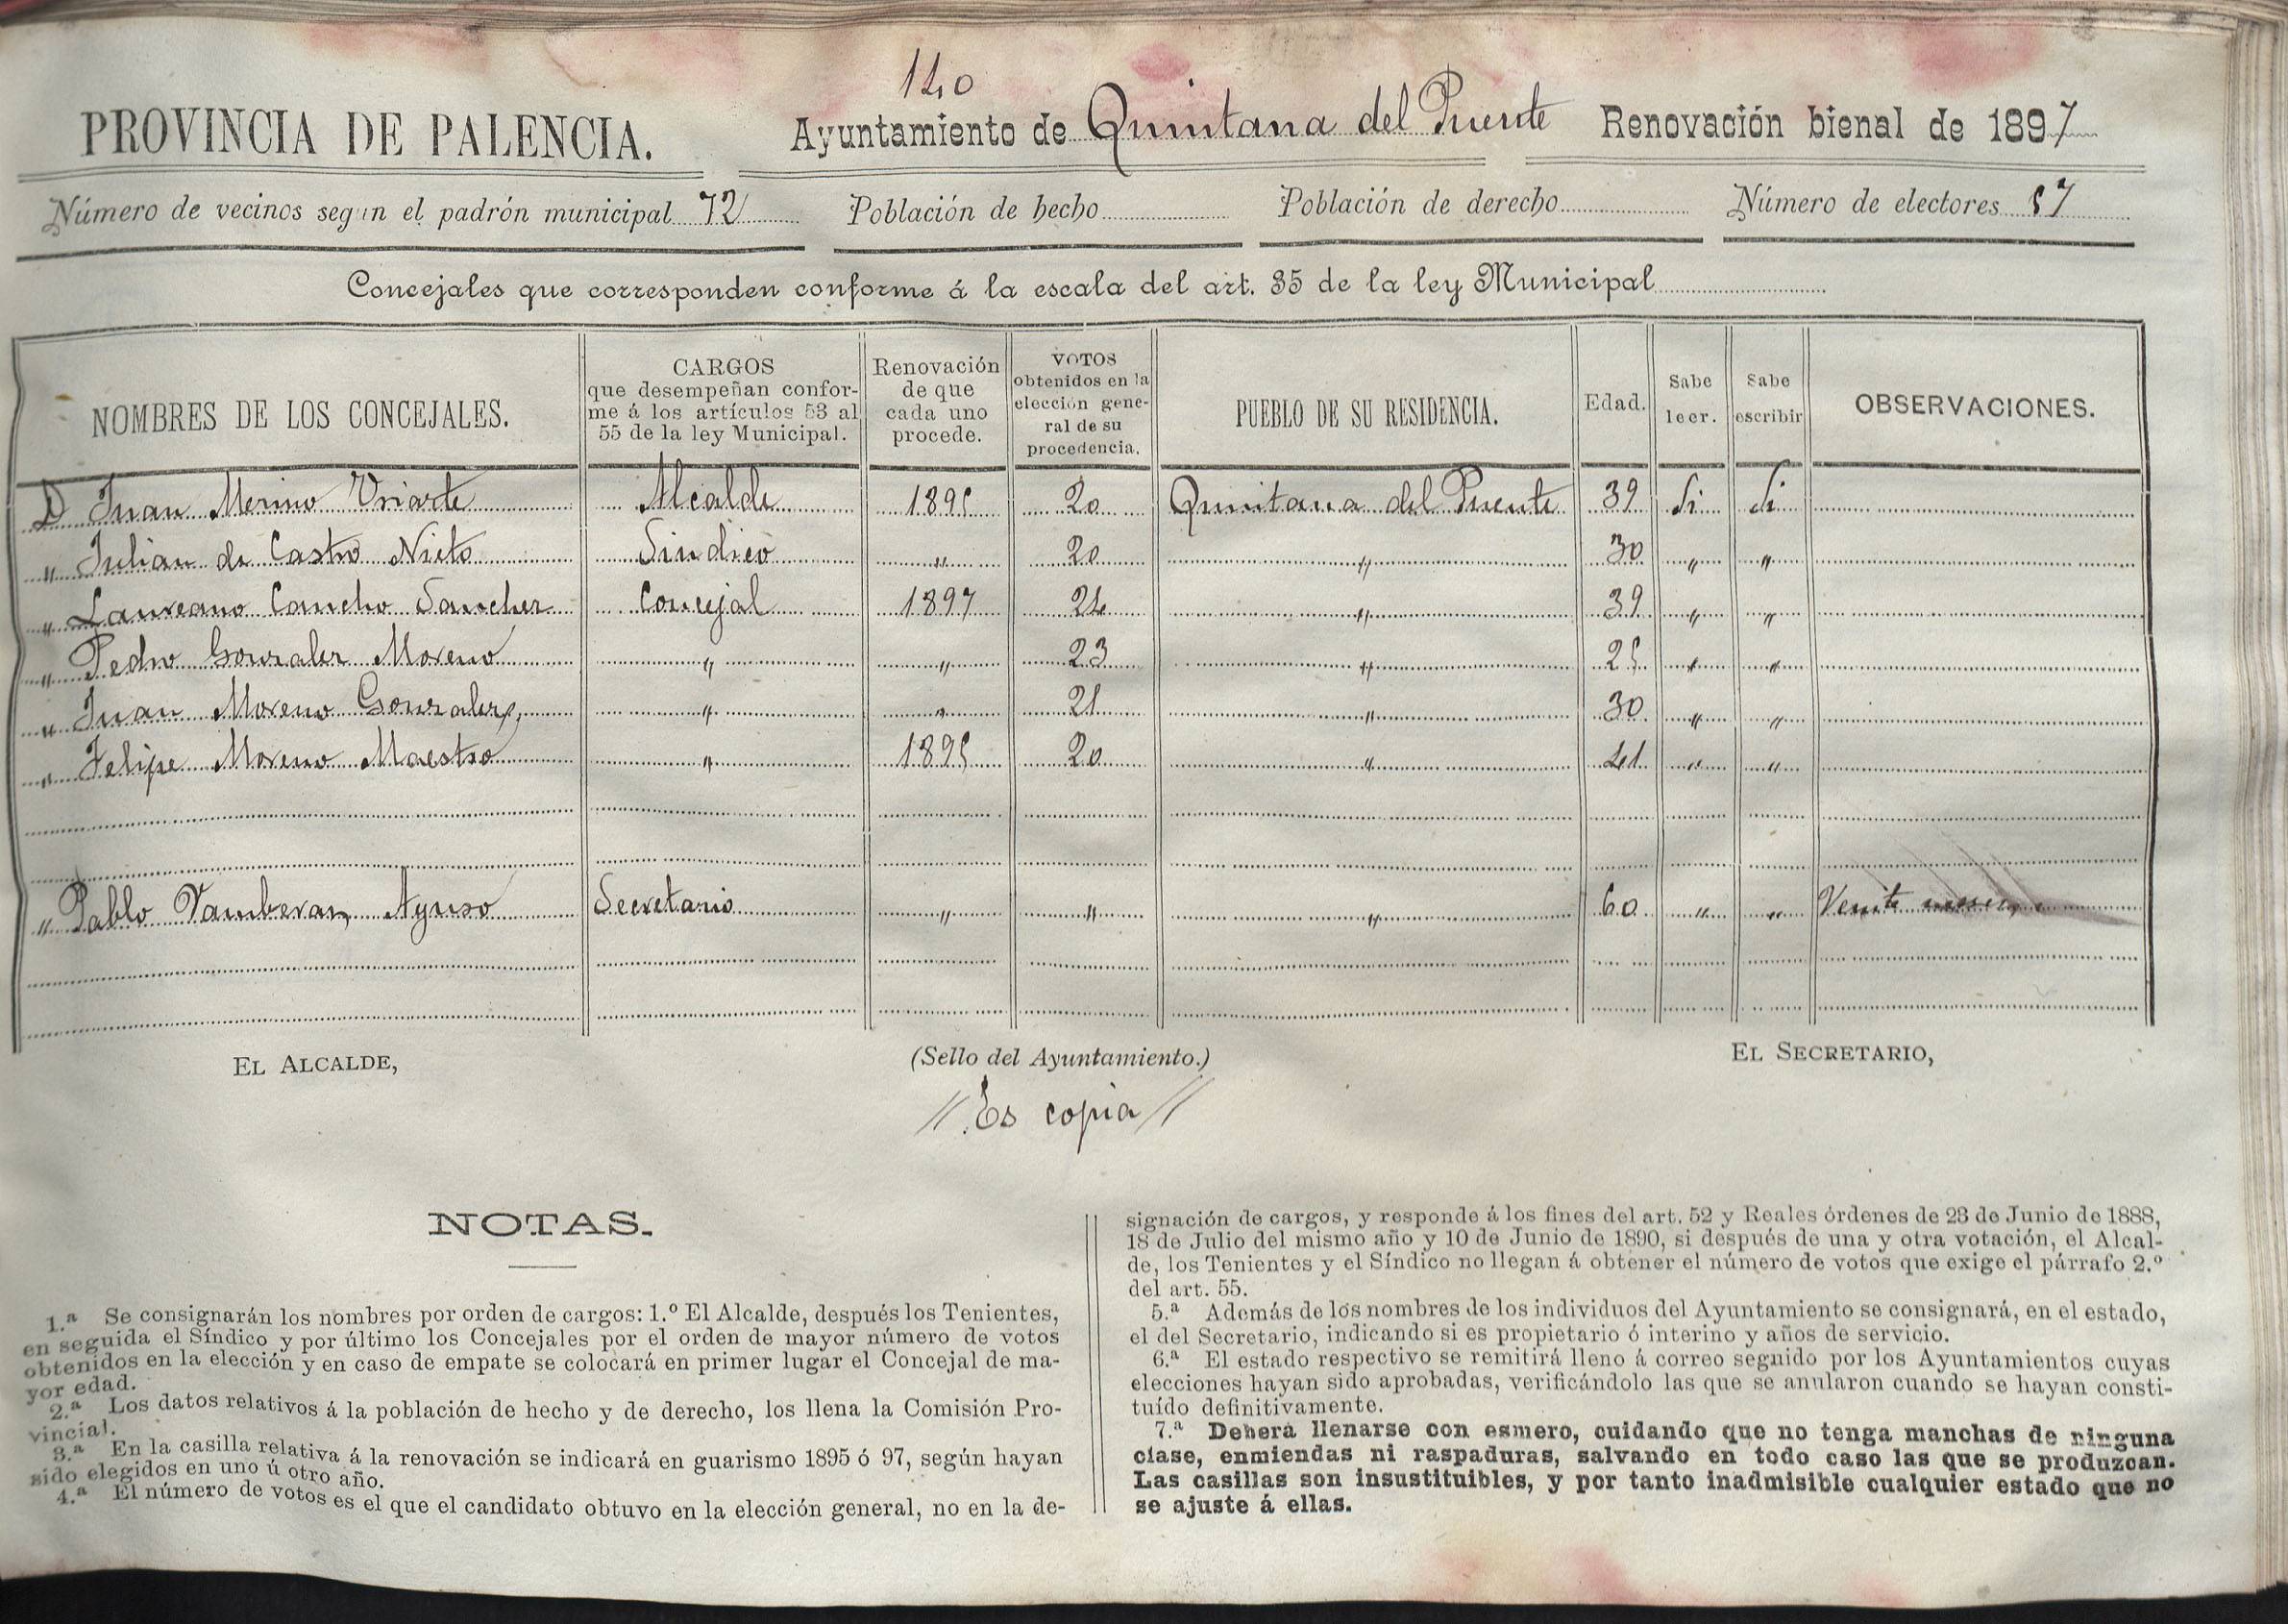 140
PROVINCIA DE PALENCIA. Ayuntamiento de Quintana del Puente Renovación bienal de 1897
Número de vecinos según el padrón municipal 72 Población de hecho Población de derecho Número de electores 57
Concejales que corresponden conforme á la escala del art. 35 de la ley Municipal
NOMBRES DE LOS CONCEJALES. CARGOS que desempeñan conforme á los artículos 53 al 55 de la ley Municipal. Renovación de que cada uno procede. VOTOS obtenidos en la elección general de su procedencia. PUEBLO DE SU RESIDENCIA. Edad. Sabe leer. Sabe escribir OBSERVACIONES.
D Juan Merino Uriarte Alcalde 1895 20 Quintana del Puente 39 Si Si
" Julian de Castro Nieto Sindico " 20 " 30 " "
" Laureano Cancho Sanchez Concejal 1897 24 " 39 " "
" Pedro Gonzalez Moreno " " 23 " 25 " "
" Juan Moreno Gonzalez " " 21 " 30 " "
" Felipe Moreno Maestro " 1895 20 " 41 " "
" Pablo Ayuso Secretario " " " 60 " "
EL ALCALDE, (Sello del Ayuntamiento.) EL SECRETARIO,
// Es copia //
NOTAS.
1.ª Se consignarán los nombres por orden de cargos: 1.º El Alcalde, después los Tenientes,
en seguida el Síndico y por último los Concejales por el orden de mayor número de votos
obtenidos en la elección y en caso de empate se colocará en primer lugar el Concejal de ma-
yor edad.
2.ª Los datos relativos á la población de hecho y de derecho, los llena la Comisión Pro-
vincial.
3.ª En la casilla relativa á la renovación se indicará en guarismo 1895 ó 97, según hayan
sido elegidos en uno ú otro año.
4.ª El número de votos es el que el candidato obtuvo en la elección general, no en la de-
signación de cargos, y responde á los fines del art. 52 y Reales órdenes de 23 de Junio de 1888,
18 de Julio del mismo año y 10 de Junio de 1890, si después de una y otra votación, el Alcal-
de, los Tenientes y el Síndico no llegan á obtener el número de votos que exige el párrafo 2.º
del art. 55.
5.ª Además de los nombres de los individuos del Ayuntamiento se consignará, en el estado,
el del Secretario, indicando si es propietario ó interino y años de servicio.
6.ª El estado respectivo se remitirá lleno á correo seguido por los Ayuntamientos cuyas
elecciones hayan sido aprobadas, verificándolo las que se anularon cuando se hayan consti-
tuído definitivamente.
7.ª Deberá llenarse con esmero, cuidando que no tenga manchas de ninguna
clase, enmiendas ni raspaduras, salvando en todo caso las que se produzcan.
Las casillas son insustituibles, y por tanto inadmisible cualquier estado que no
se ajuste á ellas.